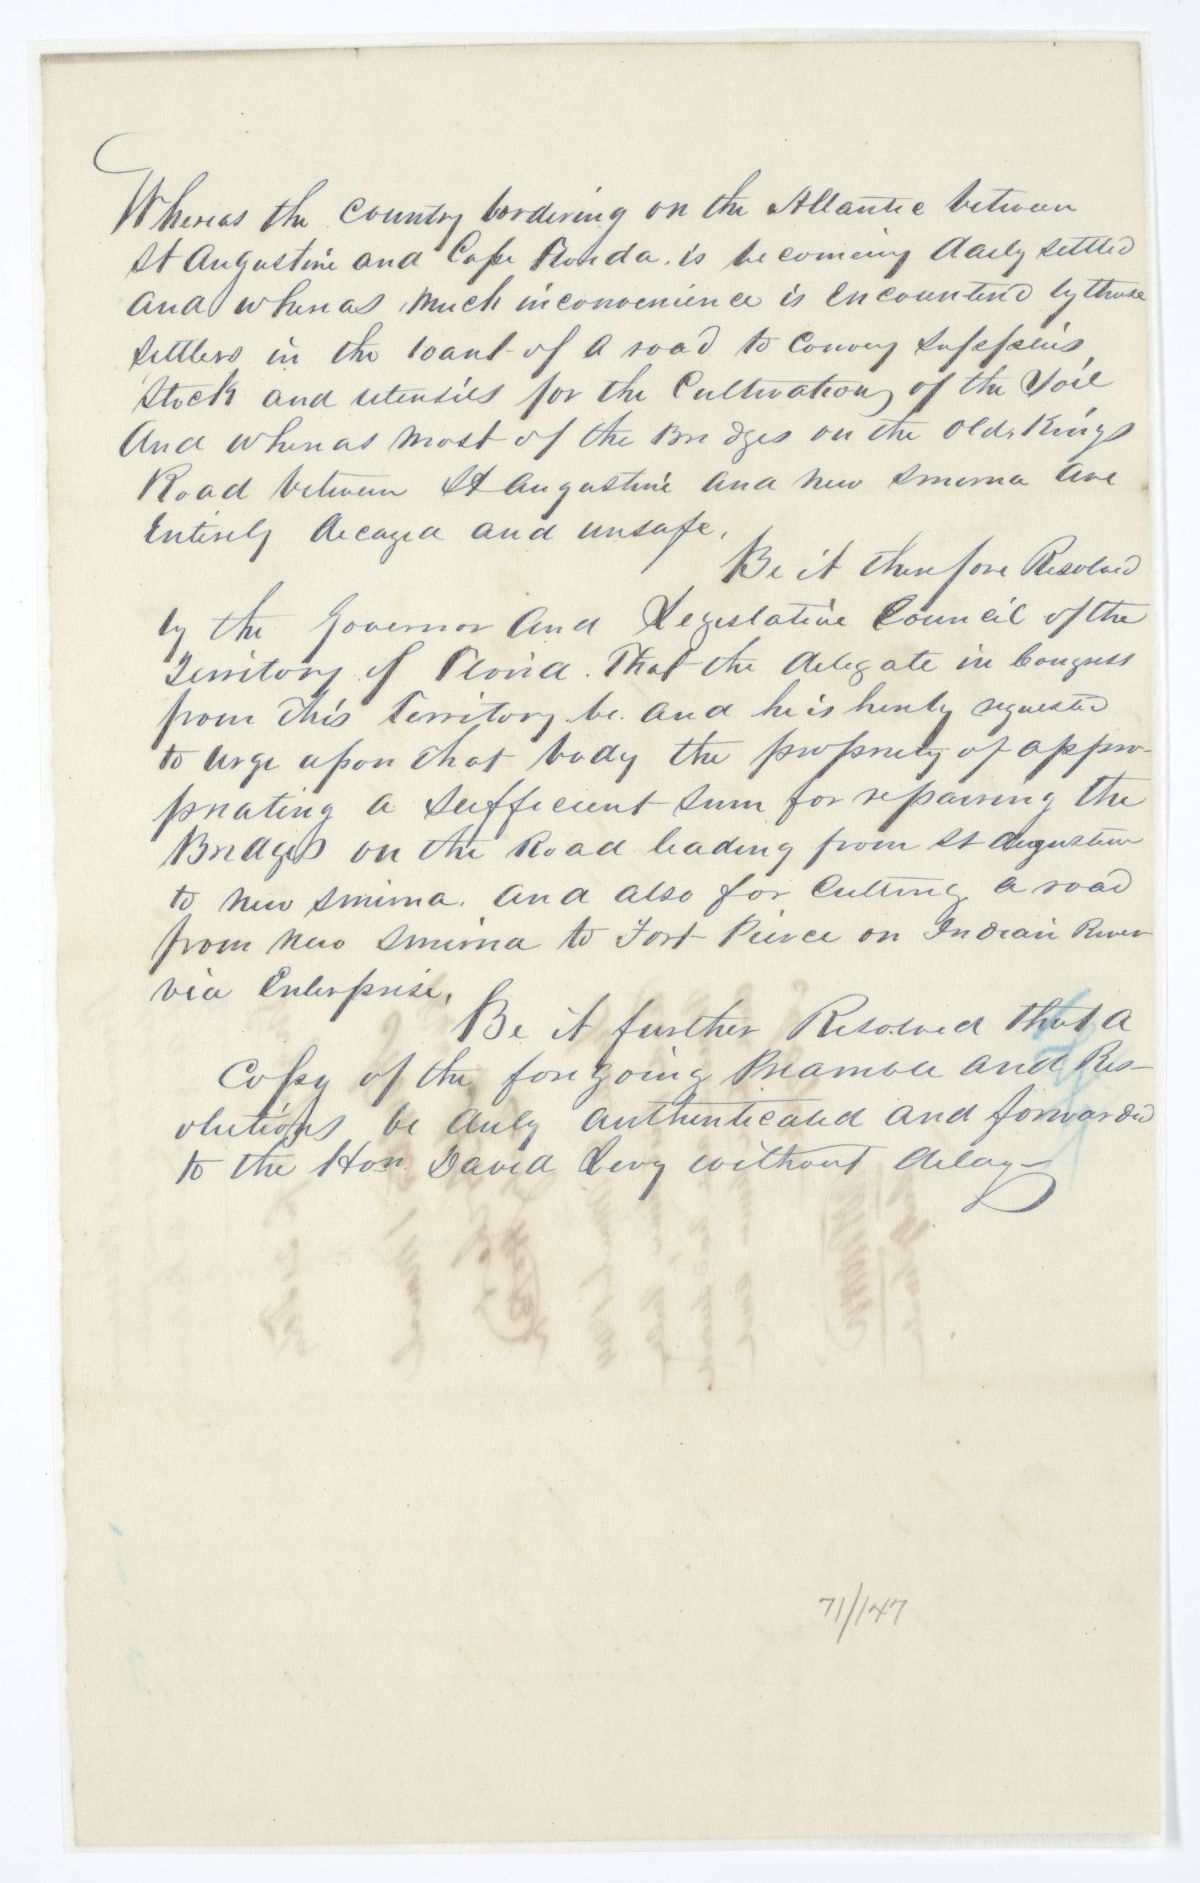 Whereas the Country bordering on the Atlantic between
St Augustine and Cape Florida. is becoming daily settled
And whereas much inconvenience is Encountered by these
settlers in the want of a road to Convey supplies,
Stock and utensils for the Cultivation of the Soil
And whereas most of the Bridges on the Old Kings
Road between St Augustine and New Smirna are
Entirely decayed and unsafe.
Be it therefore Resolved
by the Governor and Legislative Council of the
Territory of Florida. That the delegate in Congress
from this Territory be. and he is hereby requested
to urge upon that body the propriety of appro-
priating a sufficient sum for repairing the
Bridges on the Road leading from St Augustine
to New Smirna. and also for Cutting a road
from New Smirna to Fort Pierce on Indian River
via Enterprise.
Be it further Resolved that a
Copy of the foregoing Preamble and Res-
olutions be duly authenticated and forwarded
to the Hon David Levy without delay
71/147